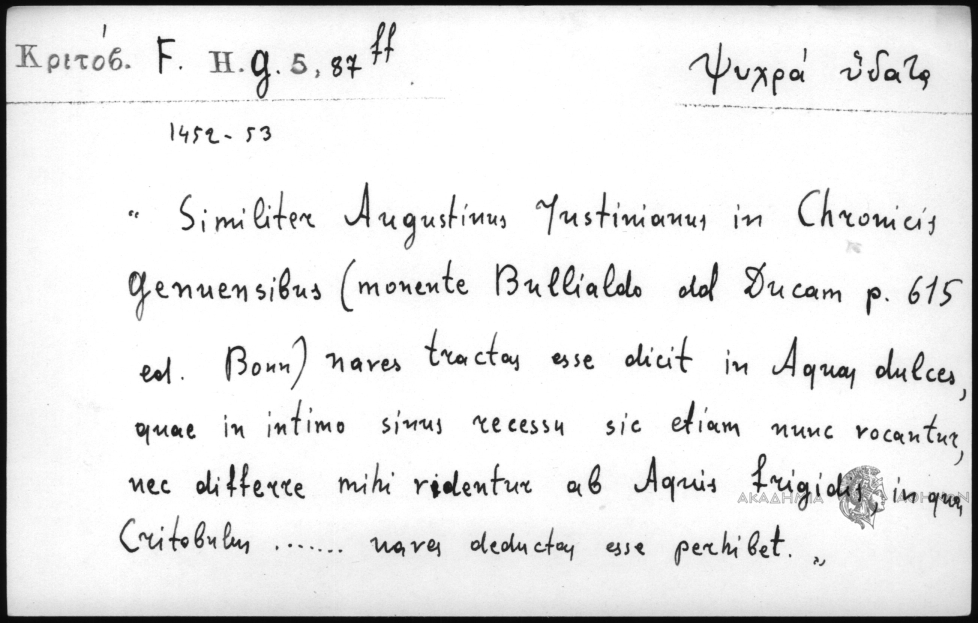 Κριτόβ. F. H. g. 5, 87 ff
Ψυχρά ὕδατα
1452 - 53
" Similiter Augustinus Justinianus in Chronicis
Genuensibus (monente Bullialdo ad Ducam p. 615
ed. Bonn) naves tractas esse dicit in Aquas dulces,
quae in intimo sinus recessu sic etiam nunc vocantur,
nec differre mihi videntur ab Aquis frigidis, in quas
ΑΚΑΔΗΜΙΑ ΑΘΗΝΩΝ
Critobulus ....... naves deductas esse perhibet. "